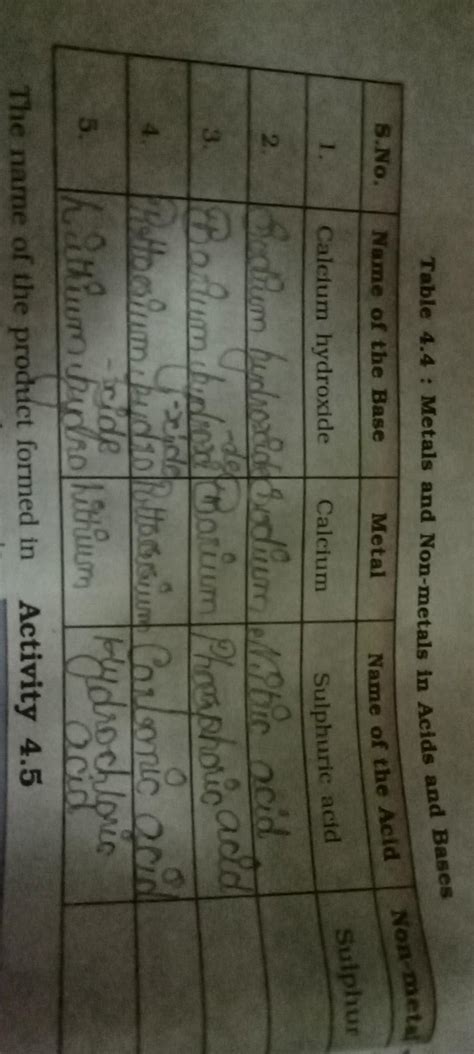 Table 4.4 : Metals and Non-metals in Acids and Bases
S.No. Name of the Base Metal Name of the Acid Non-metal
1. Calcium hydroxide Calcium Sulphuric acid Sulphur
2. Sodium hydroxide Sodium Nitric acid
3. Barium hydroxi-de Barium Phosphoric acid
4. Pottassium hydro-xide Pottassium Carbonic acid
5. Lithium hydro-xide Lithium Hydrochloric acid
The name of the product formed in Activity 4.5